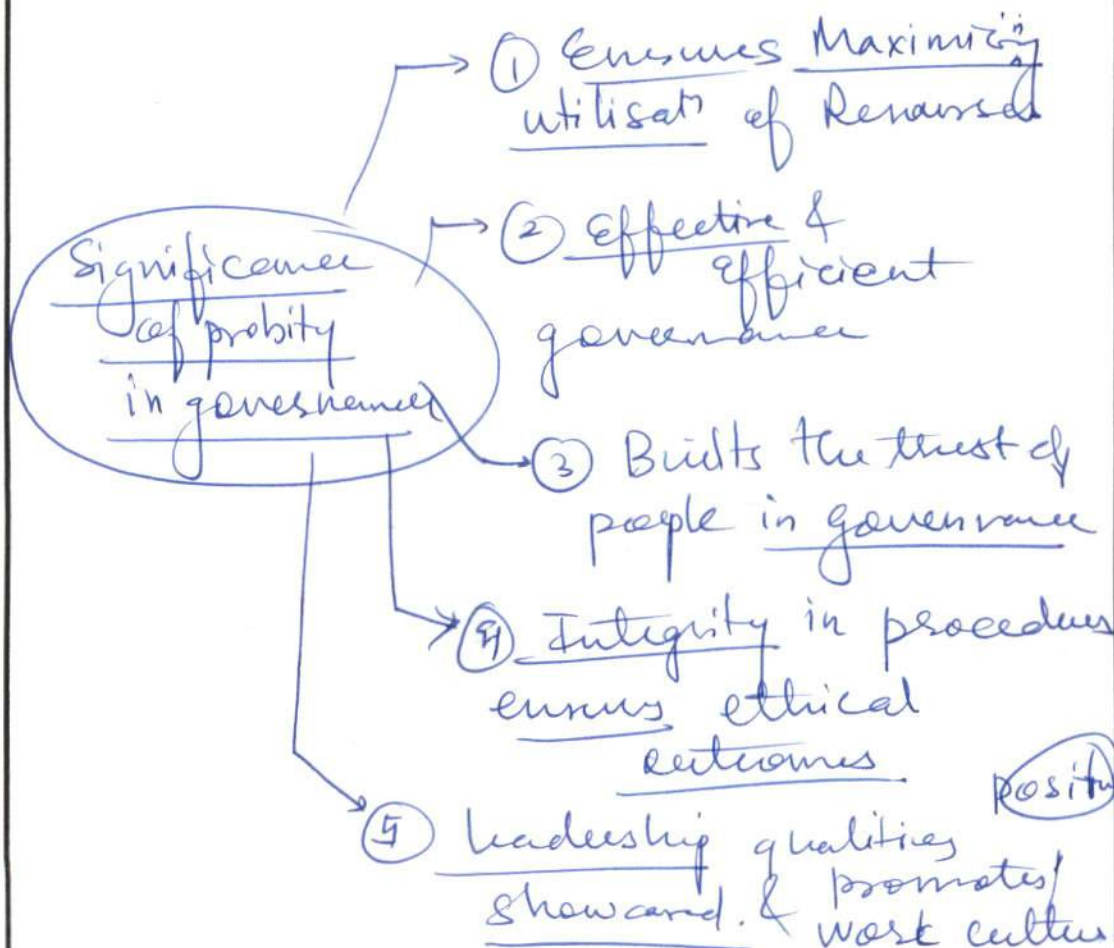 Significance
of probity
in governance
① Ensures Maximizing
utilisatn of Resourses
② Effective &
Efficient
governance
③ Builts the trust of
people in governance
④ Integrity in procedures
ensures ethical
outcomes
⑤ leadership qualities
showcased. & promotes/ positive
work culture